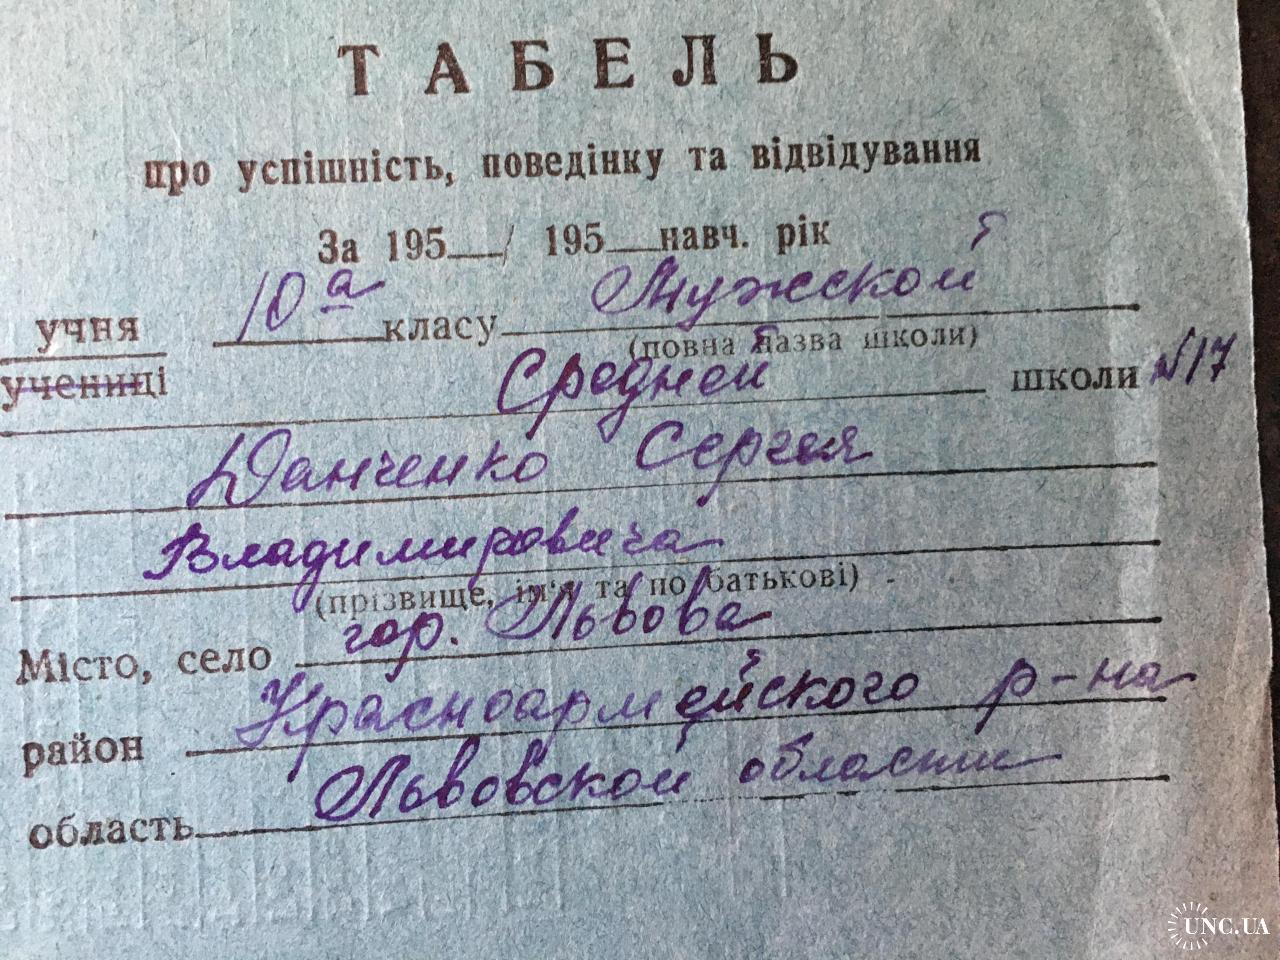 ТАБЕЛЬ
про успішність, поведінку та відвідування
За 195__/ 195__навч. рік
учня 10а класу Мужской
(повна назва школи)
учениці Средней школи №17
Данченко Сергея
Владимировича
(прізвище, ім'я та по батькові)
Місто, село гор. Львова
район Красноармейского р-на
область Львовской области
UNC.UA